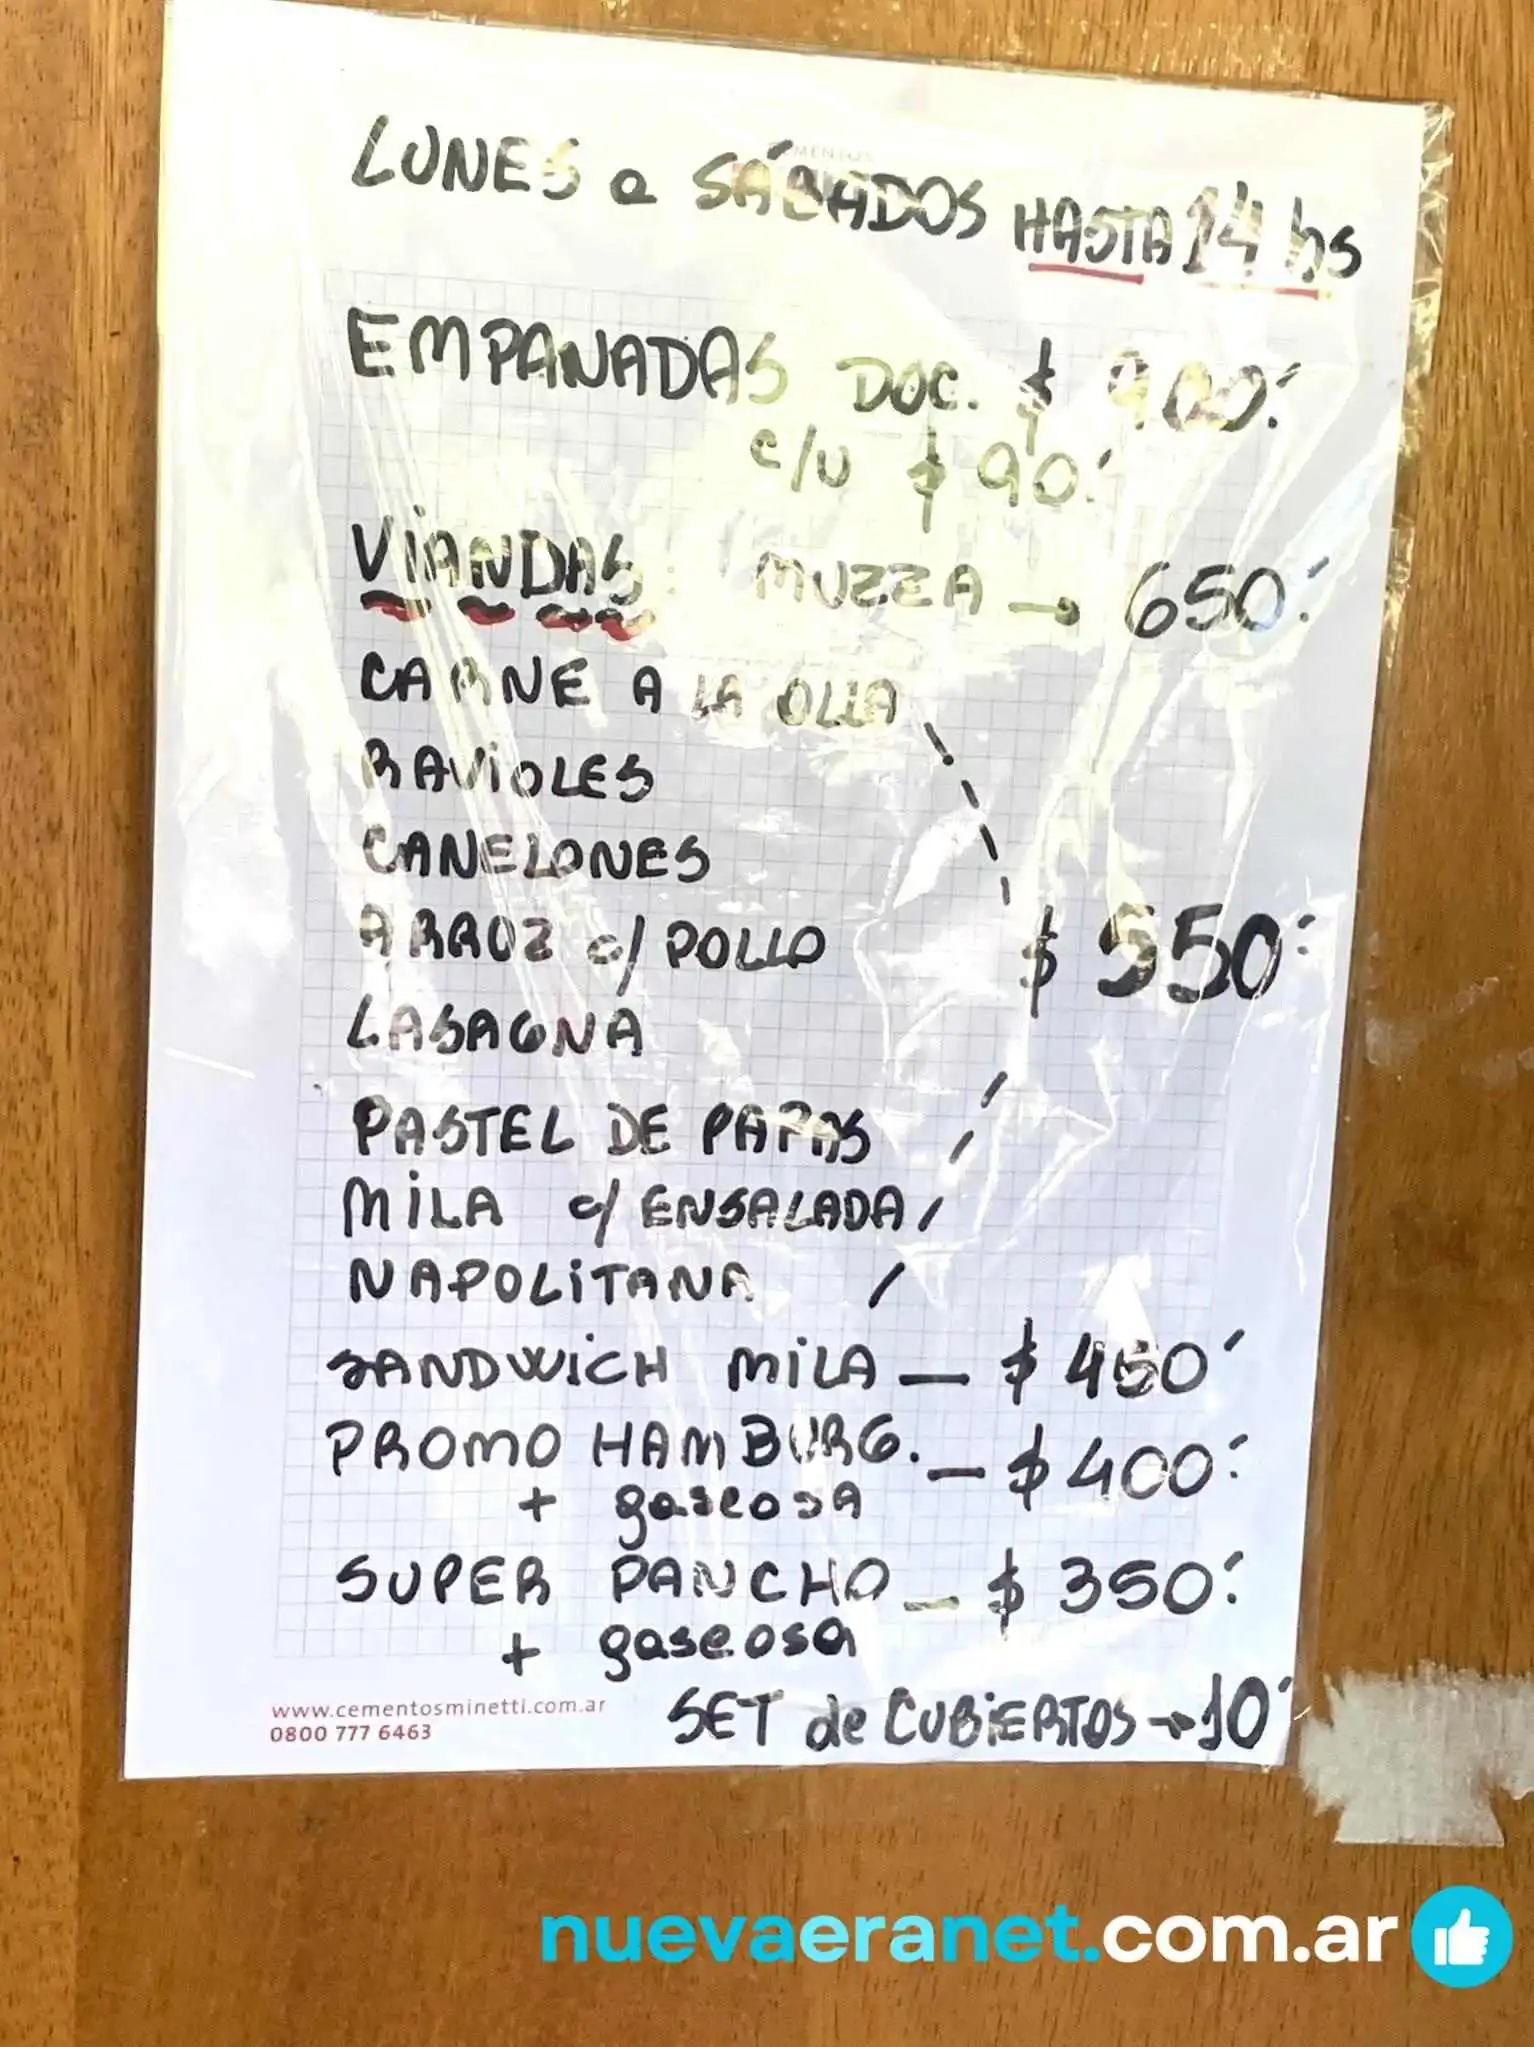 LUNES a SÁBADOS HASTA 14 hs
EMPANADAS DOC. $ 900.-
c/u $ 90.-
VIANDAS: MUZZA → 650.-
CARNE A LA OLLA
RAVIOLES
CANELONES
ARROZ c/ POLLO $ 550.-
LASAGNA
PASTEL DE PAPAS
MILA c/ ENSALADA
NAPOLITANA
SANDWICH MILA — $ 450
PROMO HAMBURG. — $ 400.-
+ gaseosa
SUPER PANCHO — $ 350.-
+ gaseosa
SET de CUBIERTOS → 10
www.cementosminetti.com.ar
0800 777 6463
nuevaeranet.com.ar